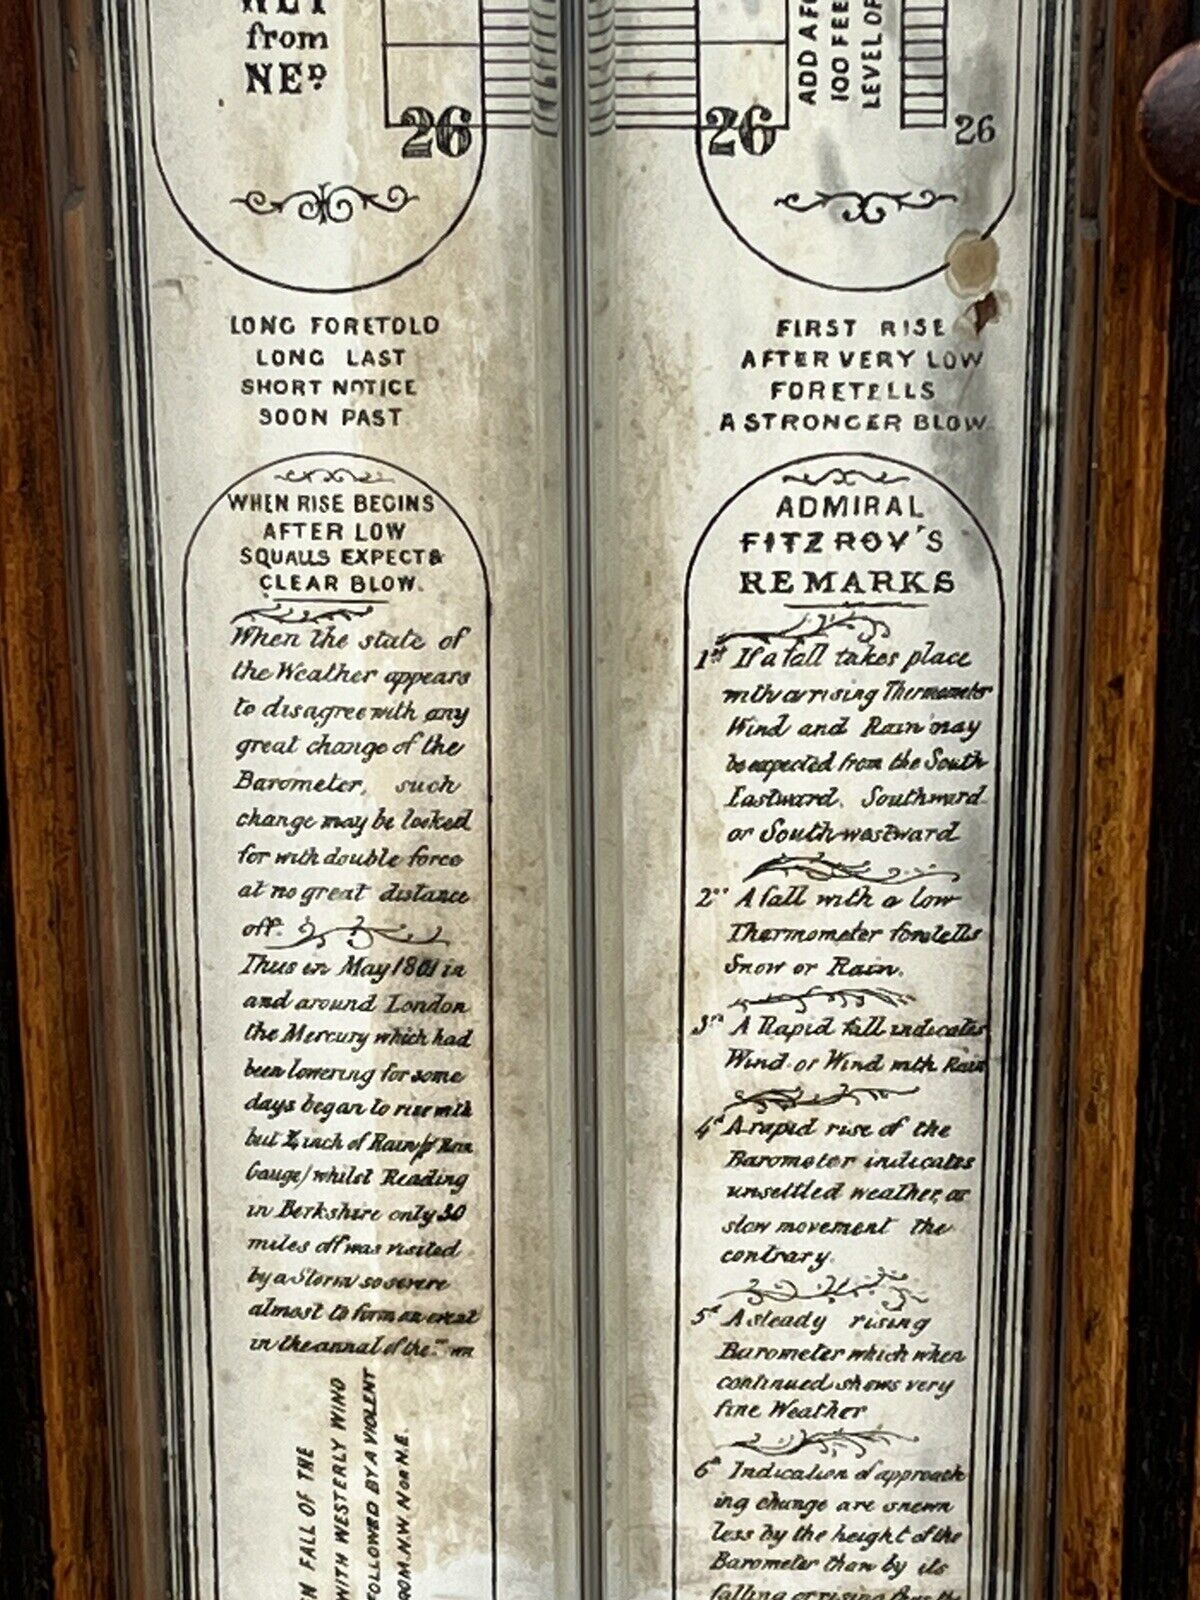 from
NED.
26
26
ADD A FO
100 FEE
LEVEL OF
26
LONG FORETOLD
LONG LAST
SHORT NOTICE
SOON PAST
FIRST RISE
AFTER VERY LOW
FORETELLS
A STRONGER BLOW
WHEN RISE BEGINS
AFTER LOW
SQUALLS EXPECT &
CLEAR BLOW.
When the state of
the Weather appears
to disagree with any
great change of the
Barometer, such
change may be looked
for with double force
at no great distance
off.
Thus in May 1861 in
and around London
the Mercury which had
been lowering for some
days began to rise with
but ¼ inch of Rain
Gauge) whilst Reading
in Berkshire only 30
miles off was visited
by a Storm so severe
almost to form an event
in the annal of the
FALL OF THE
WITH WESTERLY WIND
FOLLOWED BY A VIOLENT
FROM. N.W. N or N.E.
ADMIRAL
FITZROY'S
REMARKS
1st If a fall takes place
with a rising Thermometer
Wind and Rain may
be expected from the South
Eastward. Southward
or Southwestward
2nd A fall with a low
Thermometer foretells
Snow or Rain.
3rd A Rapid fall indicates
Wind or Wind with Rain
4th A rapid rise of the
Barometer indicates
unsettled weather, as
slow movement the
contrary.
5th A steady rising
Barometer which when
continued shows very
fine Weather
6th Indication of approach
ing change are snewn
less by the height of the
Barometer than by its
falling or rising